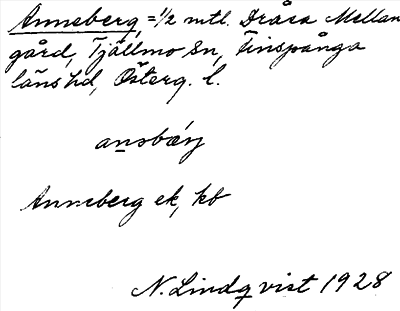 Anneberg, = 1/2 mtl. Dråsa Mellan
gård, Tjällmo sn, Finspånga
läns hd, Österg. l.
ansbærj
Anneberg ek, kb
N. Lindqvist 1928